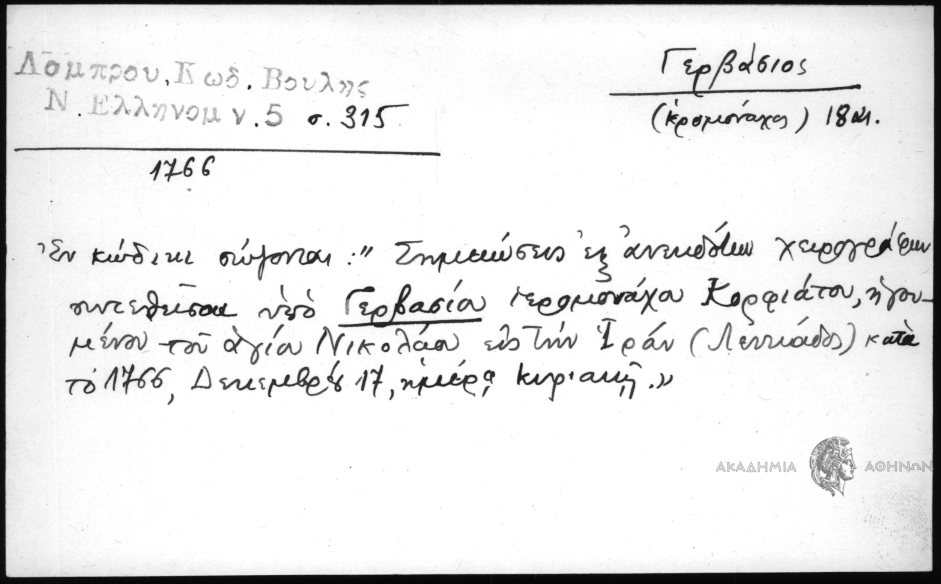 Λάμπρου, Κωδ. Βουλης
Γερβάσιος
Ν. Ελληνομ ν. 5 σ. 315
(ἱερομονάχος) 18 αι.
1766
Ἐν κώδικι σώζονται: " Σημειώσεις ἐξ ἀνεκδότων χειρογράφων
συντεθεῖσαι ὑπὸ Γερβασίου ἱερομονάχου Κορφιάτου, ἡγου-
μένου τοῦ ἁγίου Νικολάου εἰς τὴν Ἱράν (Λευκάδος) κατὰ
τὸ 1766, Δεκεμβρίου 17, ἡμέρᾳ Κυριακῇ.»
ΑΚΑΔΗΜΙΑ ΑΘΗΝΩΝ